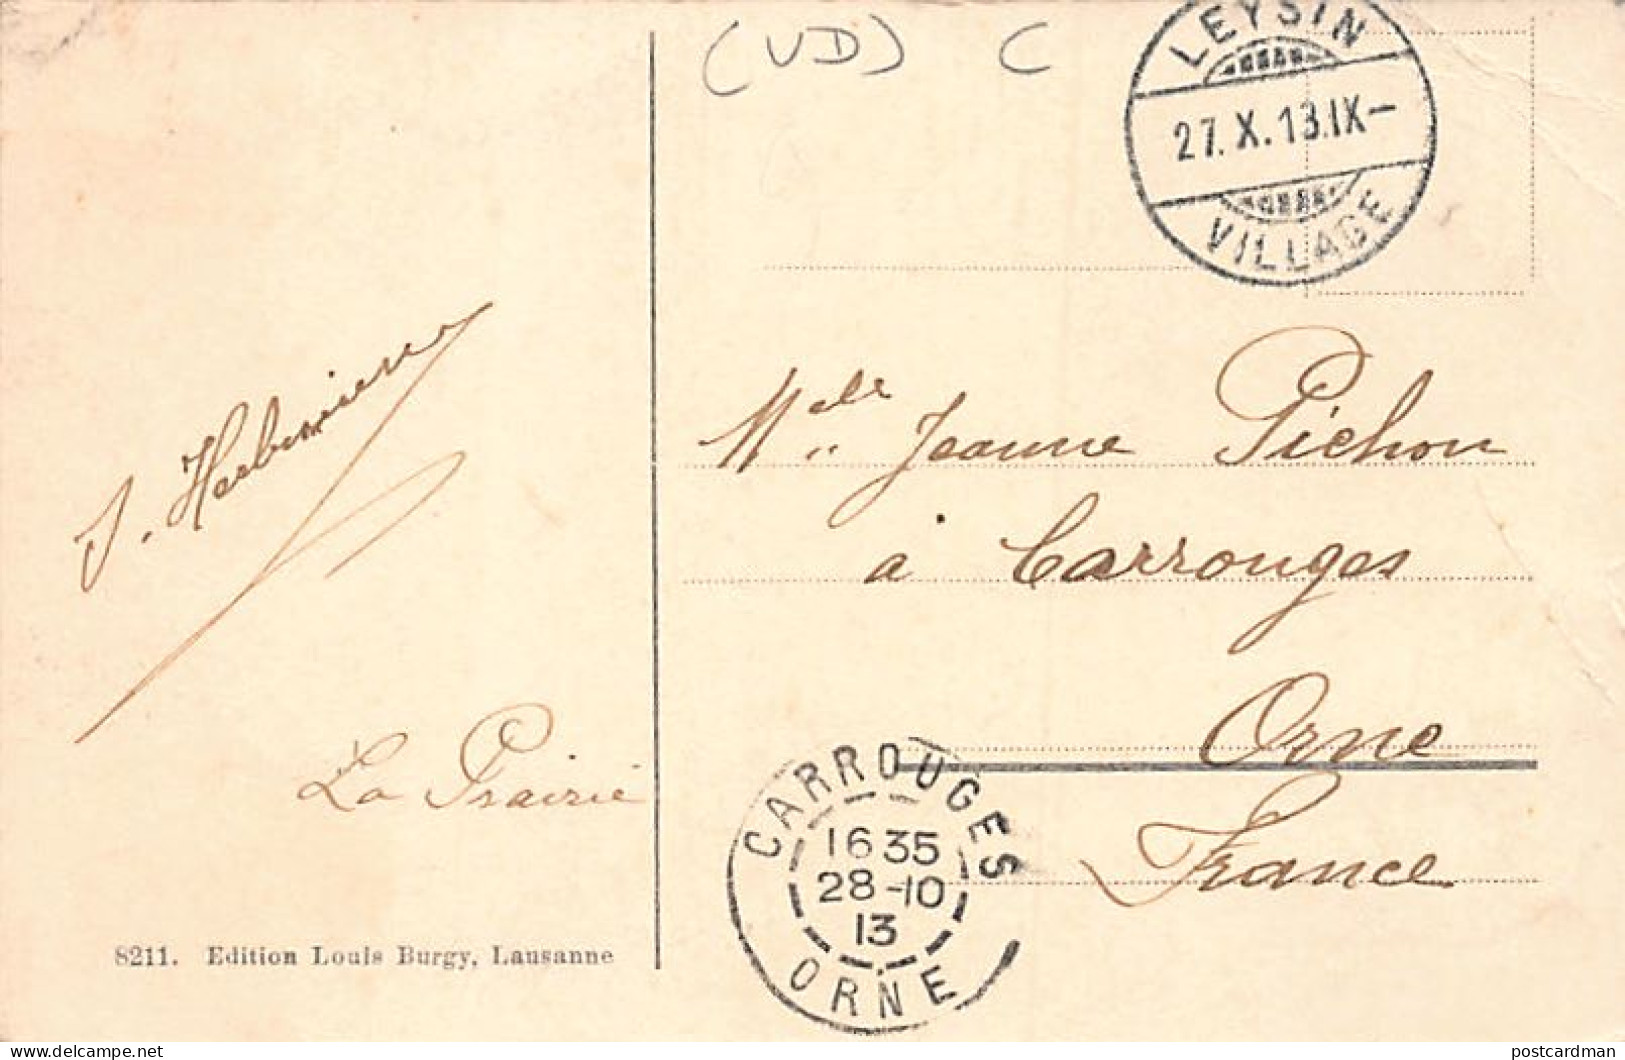 (VD) C
LEYSIN
27. X. 13.IX-
VILLAGE
Melle Jeanne Pichon
à Carrouges
Orne
France
J.
La Prairie
CARROUGES
1635
28-10
13
ORNE
8211. Edition Louis Burgy, Lausanne
postcardman